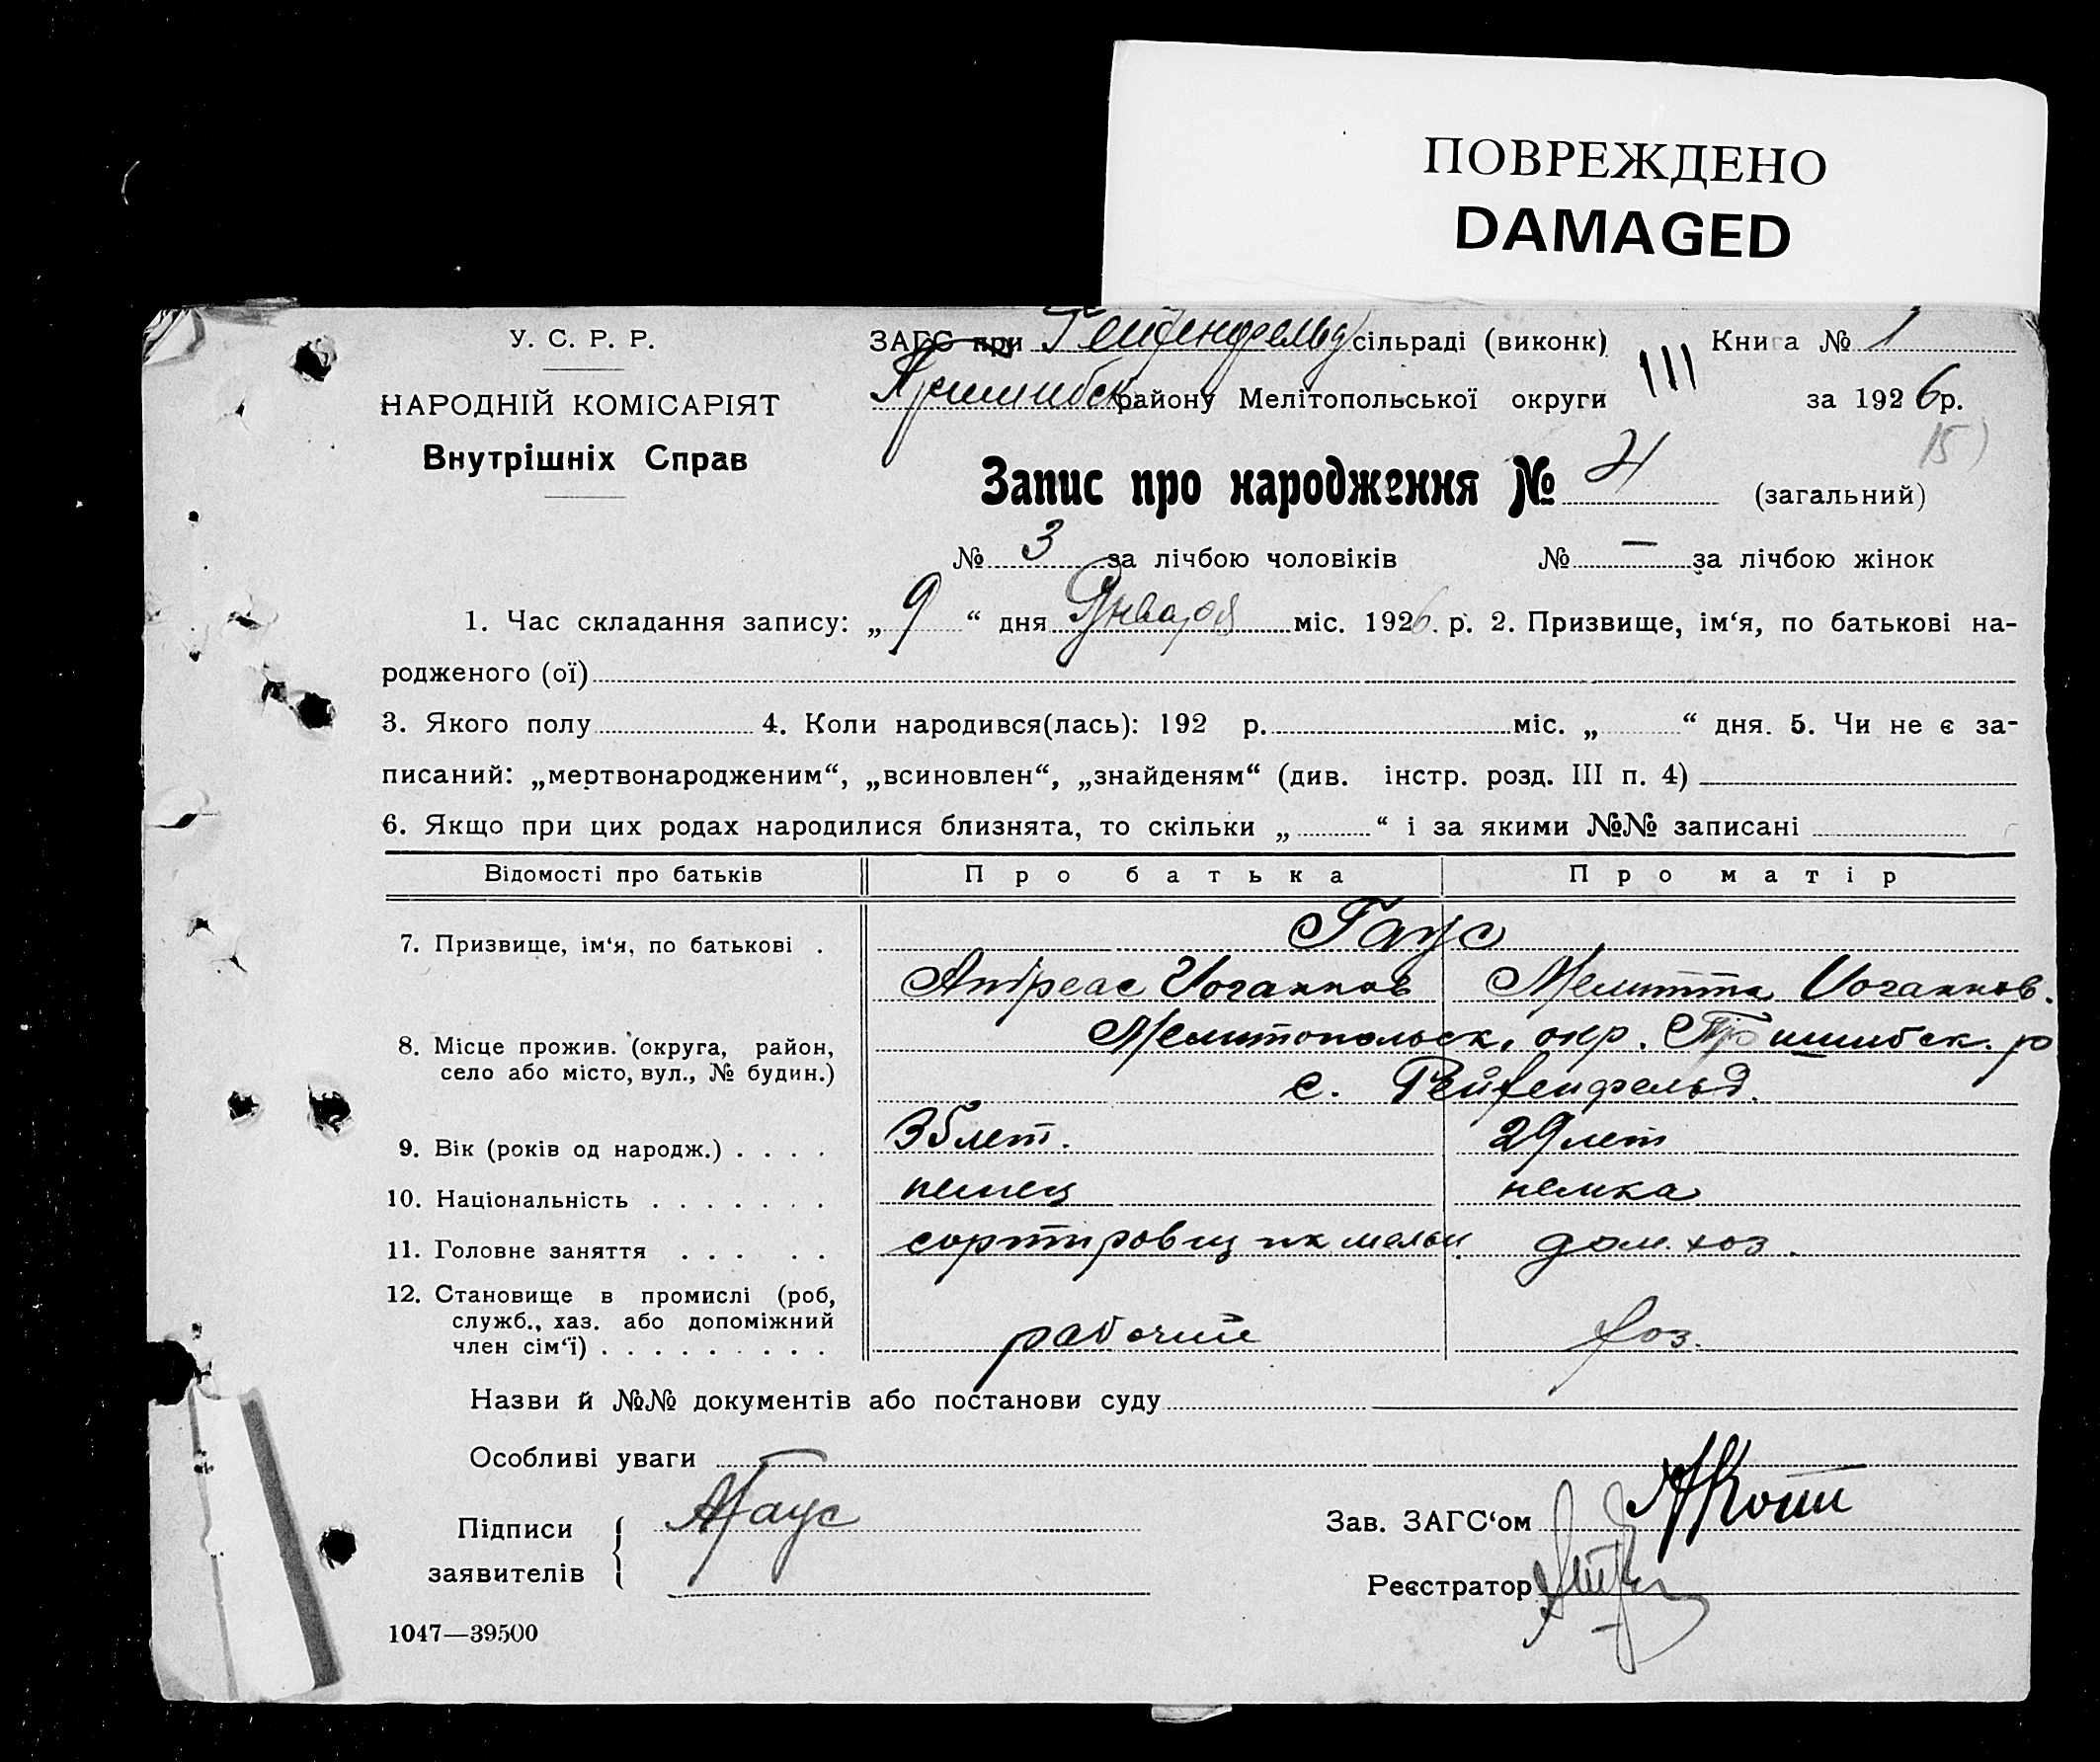 ПОВРЕЖДЕНО
DAMAGED
У. С. Р. Р.
НАРОДНІЙ КОМІСАРІЯТ
Внутрішніх Справ
ЗАГС при Гейденфельд сільраді (виконк) Книга № 1
Пришибск. району Мелітопольської округи III за 1926 р.
15)
Запис про народження № 4 (загальний)
№ 3 за лічбою чоловіків № — за лічбою жінок
1. Час складання запису: „ 9 “ дня Января міс. 1926. р. 2. Призвище, ім‘я, по батькові на-
родженого (ої)
3. Якого полу 4. Коли народився(лась): 192 р. міс. „ “ дня. 5. Чи не є за-
писаний: „мертвонародженим“, „всиновлен“, „знайденям“ (див. інстр. розд. III п. 4)
6. Якщо при цих родах народилися близнята, то скільки „ “ і за якими №№ записані
Відомості про батьків Про батька Про матір
7. Призвище, ім‘я, по батькові . Гаус
Андреас Иоганнов Мелитта Иоганнов.
8. Місце прожив. (округа, район, село або місто, вул., № будин.) Мелитопольск. окр. Пришибск. р
с. Гейденфельд.
9. Вік (років од народж.) . . . . 35 лет. 29 лет
10. Національність . . . . . . . немец немка
11. Головне заняття . . . . . сортировщ на мельн. дом. хоз.
12. Становище в промислі (роб, служб., хаз. або допоміжний член сім‘ї) . . . . . . . . . рабочий хоз.
Назви й №№ документів або постанови суду
Особливі уваги
Підписи заявителів АГаус
Зав. ЗАГС‘ом
Реєстратор
1047—39500